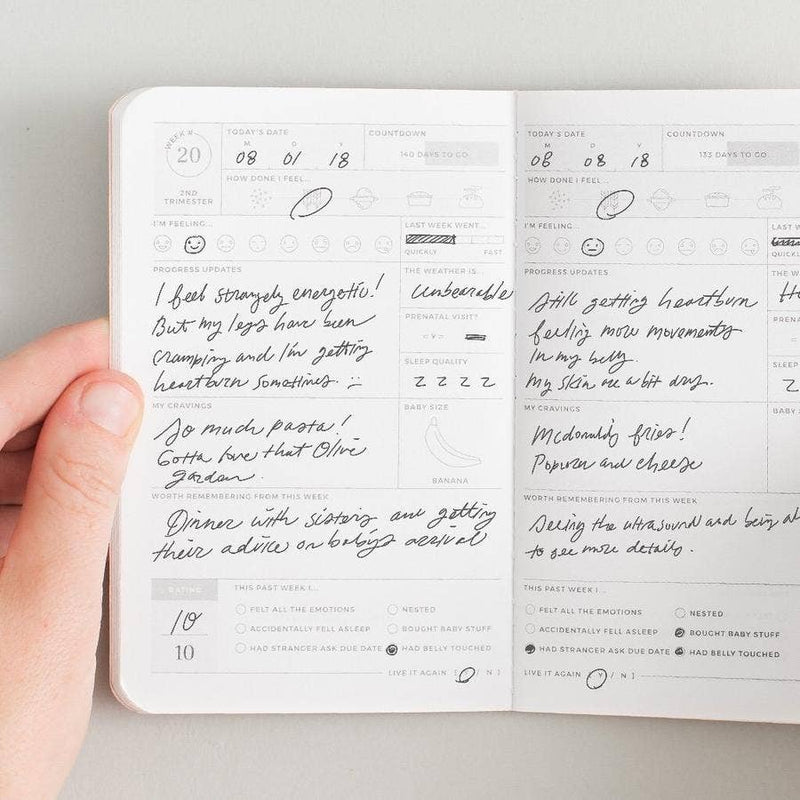 WEEK #
20
2ND
TRIMESTER
TODAY'S DATE
M D Y
08 01 18
COUNTDOWN
140 DAYS TO GO
HOW DONE I FEEL...
I'M FEELING...
LAST WEEK WENT...
QUICKLY FAST
PROGRESS UPDATES
I feel strangely energetic!
But my legs have been
cramping and I'm getting
heartburn sometimes.
THE WEATHER IS...
Unbearable
PRENATAL VISIT?
SLEEP QUALITY
Z Z Z Z
MY CRAVINGS
So much pasta!
Gotta love that Olive
Garden.
BABY SIZE
BANANA
WORTH REMEMBERING FROM THIS WEEK
Dinner with sisters and getting
their advice on baby's arrival
RATING
10
10
THIS PAST WEEK I...
FELT ALL THE EMOTIONS
NESTED
ACCIDENTALLY FELL ASLEEP
BOUGHT BABY STUFF
HAD STRANGER ASK DUE DATE
HAD BELLY TOUCHED
LIVE IT AGAIN [ Y / N ]
TODAY'S DATE
M D Y
08 08 18
COUNTDOWN
133 DAYS TO GO
HOW DONE I FEEL...
I'M FEELING...
LAST W
QUICKLY
PROGRESS UPDATES
Still getting heartburn
feeling more movements
in my belly.
My skin are a bit dry.
THE W
PRENA
SLEEP
Z
MY CRAVINGS
Mcdonald's fries!
Popcorn and cheese
BABY
WORTH REMEMBERING FROM THIS WEEK
Seeing the ultrasound and being
to see more details.
THIS PAST WEEK I...
FELT ALL THE EMOTIONS
NESTED
ACCIDENTALLY FELL ASLEEP
BOUGHT BABY STUFF
HAD STRANGER ASK DUE DATE
HAD BELLY TOUCHED
LIVE IT AGAIN [ Y / N ]